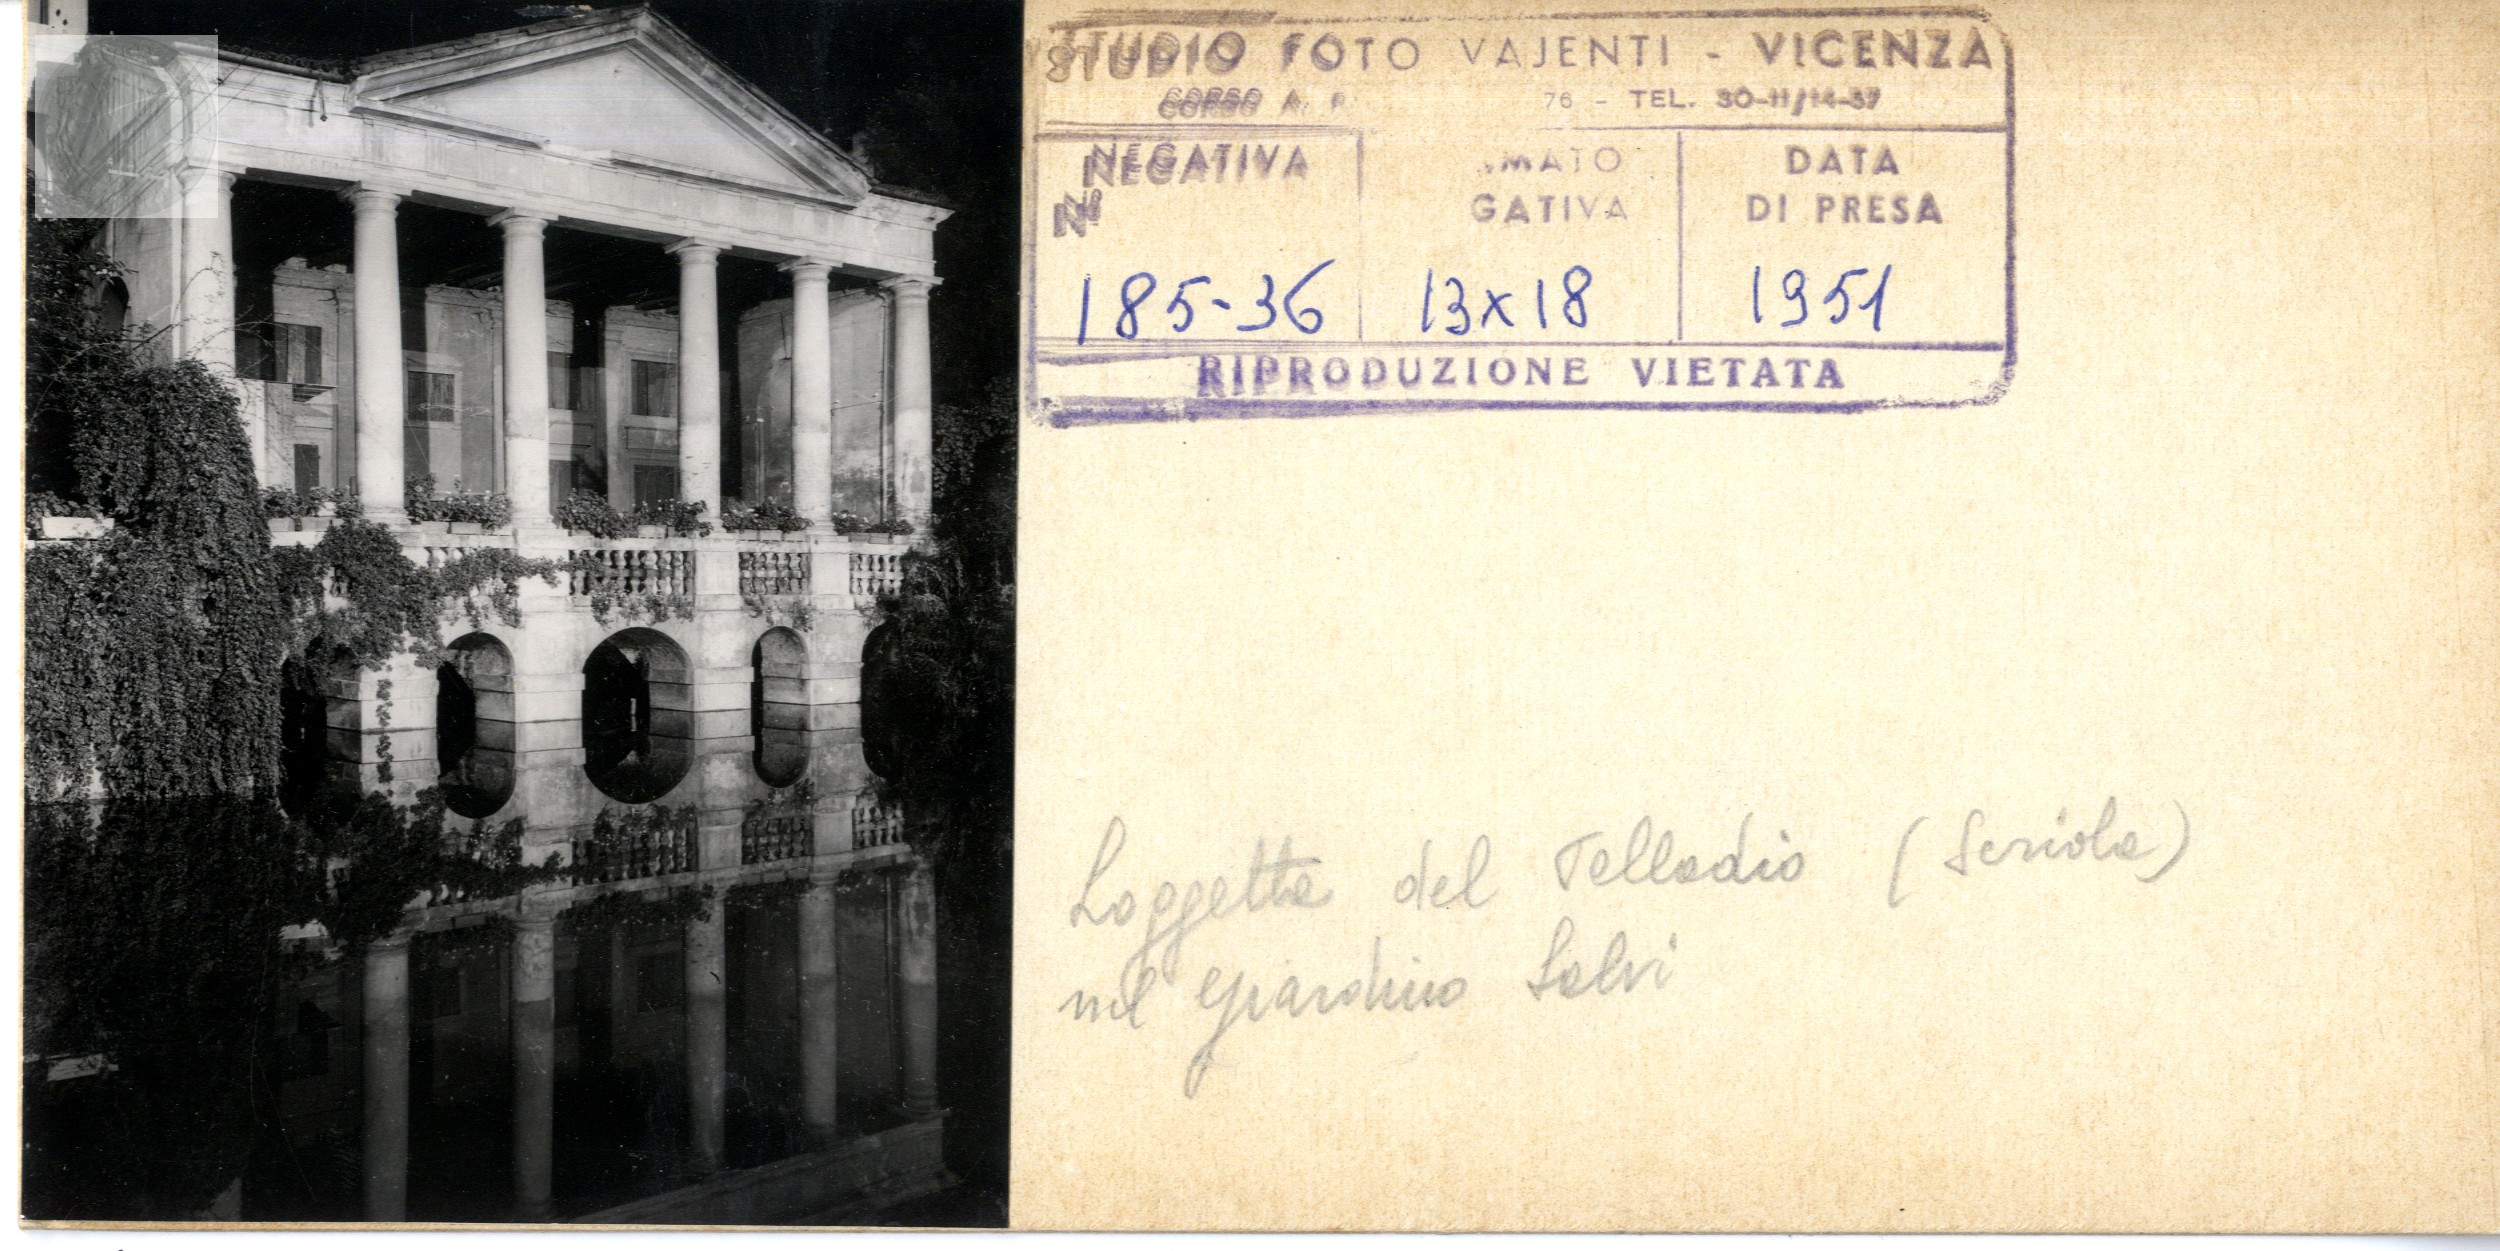 STUDIO FOTO VAJENTI - VICENZA
CORSO A. P. 76 - TEL. 30-11/14-37
NEGATIVA
N°
MATO
GATIVA
DATA
DI PRESA
185-36
13x18
1951
RIPRODUZIONE VIETATA
Loggetta del Palladio (Seriola)
nel Giardino Salvi